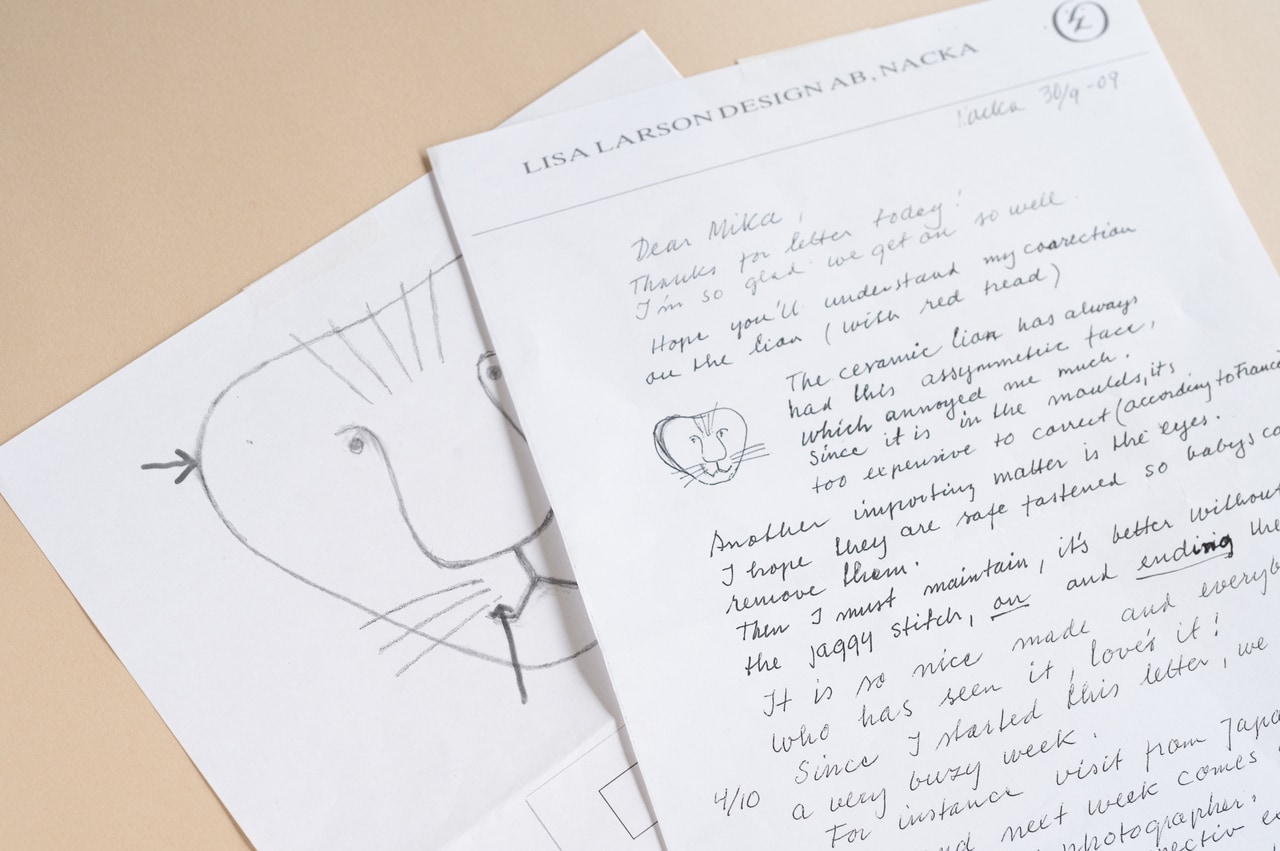 LISA LARSON DESIGN AB, NACKA
Nacka 30/9 -09
Dear Mika,
Thanks for letter today!
I'm so glad we get on so well.
Hope you'll understand my correction
on the lion (with red head)
The ceramic lion has always
had this assymmetric face,
which annoyed me much.
Since it is in the moulds, it's
too expensive to correct (according to Franco
Another importing matter is the eyes.
I hope they are safe fastened so babys co
remove them.
Then I must maintain, it's better without
the jaggy stitch, on and ending the
It is so nice made and everyb
who has seen it, love's it!
Since I started this letter, we
4/10 a very buzy week.
For instance visit from Japa
next week comes
photographer.